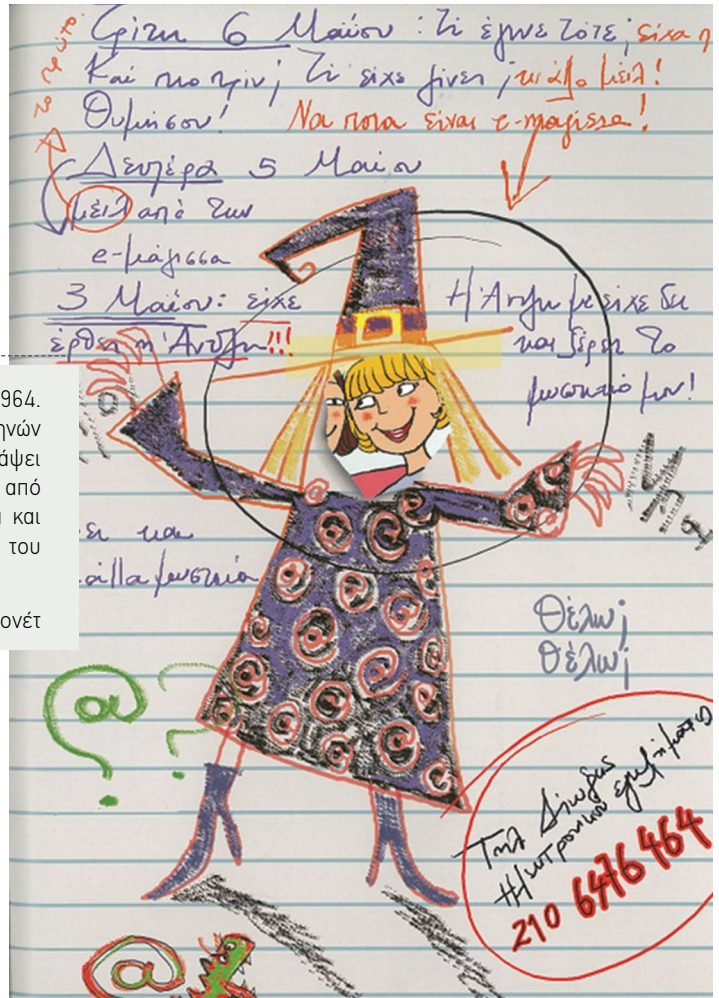 το πρώτο.
Τρίτη 6 Μαΐου : Τί έγινε τότε; είχα
Και πιο πριν; Τί είχε γίνει; κι άλλο μέιλ!
Θυμήσου! Να ποια είναι e-μάγισσα!
Δευτέρα 5 Μαΐου
μέιλ από την
e-μάγισσα
3 Μαΐου: είχε
έρθει η Άντζη!!!
Η Άντζη με είχε δει
και ξέρει το
μυστικό μου!
964.
ηνών
άψει
από
και
του
ονέτ
και
άλλα μυστικά
Θέλω;
Θέλω;
@?
Τηλ Δίωξης
Ηλεκτρονικού εγκλήματος
210 6476 464
@